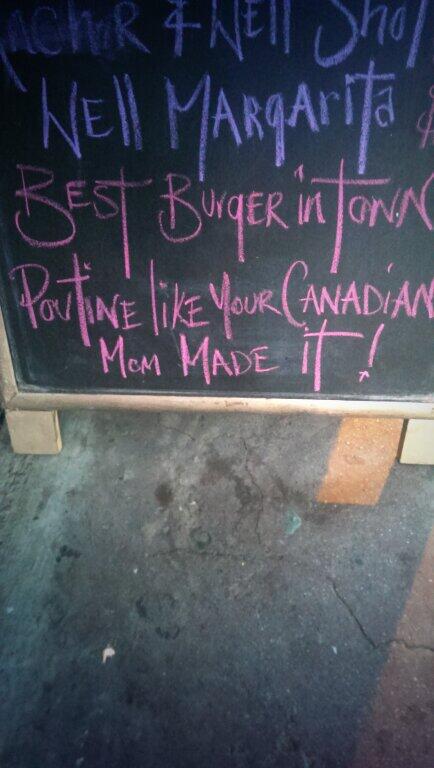 & Well Shot
Well Margarita $
Best Burger in Town
Poutine like Your Canadian
Mom Made it!